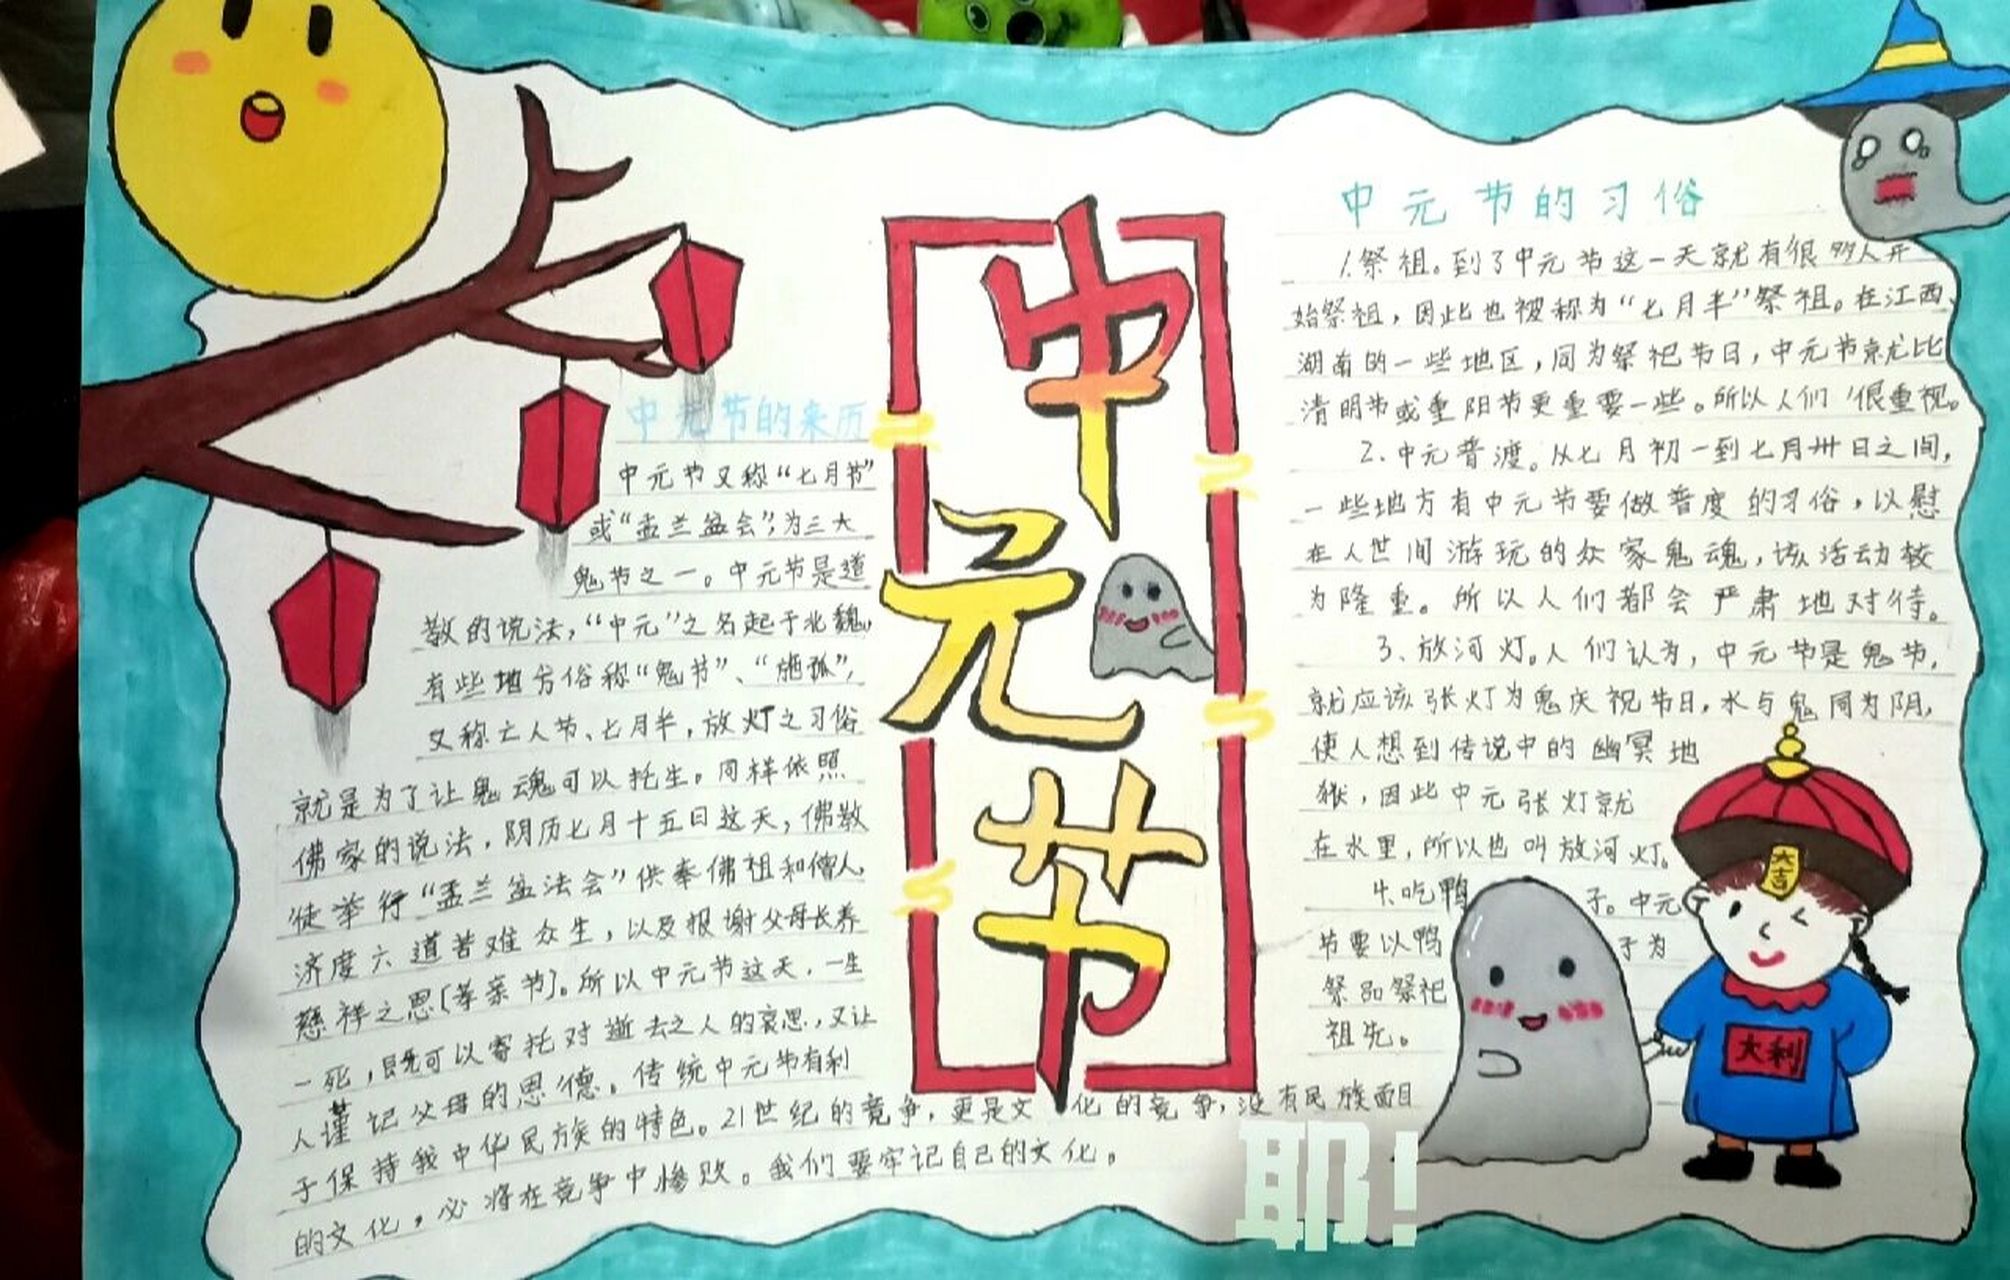 中元节
中元节的来历
中元节又称“七月节”
或“盂兰盆会”，为三大
鬼节之一。中元节是道
教的说法，“中元”之名起于北魏，
有些地方俗称“鬼节”、“施孤”，
又称亡人节、七月半，放灯之习俗
就是为了让鬼魂可以托生。同样依照
佛家的说法，阴历七月十五日这天，佛教
徒举行“盂兰盆法会”供奉佛祖和僧人，
济度六道苦难众生，以及报谢父母长养
慈祥之恩（孝亲节）。所以中元节这天，一生
一死，既可以寄托对逝去之人的哀思，又让
人谨记父母的恩德。传统中元节有利
于保持我中华民族的特色。21世纪的竞争，更是文化的竞争，没有民族面目
的文化，必将在竞争中惨败。我们要牢记自己的文化。
中元节的习俗
1.祭祖。到了中元节这一天就有很多人开
始祭祖，因此也被称为“七月半”祭祖。在江西、
湖南的一些地区，同为祭祀节日，中元节就比
清明节或重阳节更重要一些。所以人们很重视。
2、中元普渡。从七月初一到七月卅日之间，
一些地方有中元节要做普度的习俗，以慰
在人世间游玩的众家鬼魂，该活动较
为隆重。所以人们都会严肃地对待。
3、放河灯。人们认为，中元节是鬼节，
就应该张灯为鬼庆祝节日，水与鬼同为阴，
使人想到传说中的幽冥地
狱，因此中元张灯就
在水里，所以也叫放河灯。
4.吃鸭子。中元
节要以鸭子为
祭品祭祀
祖先。
大吉
大利
耶！